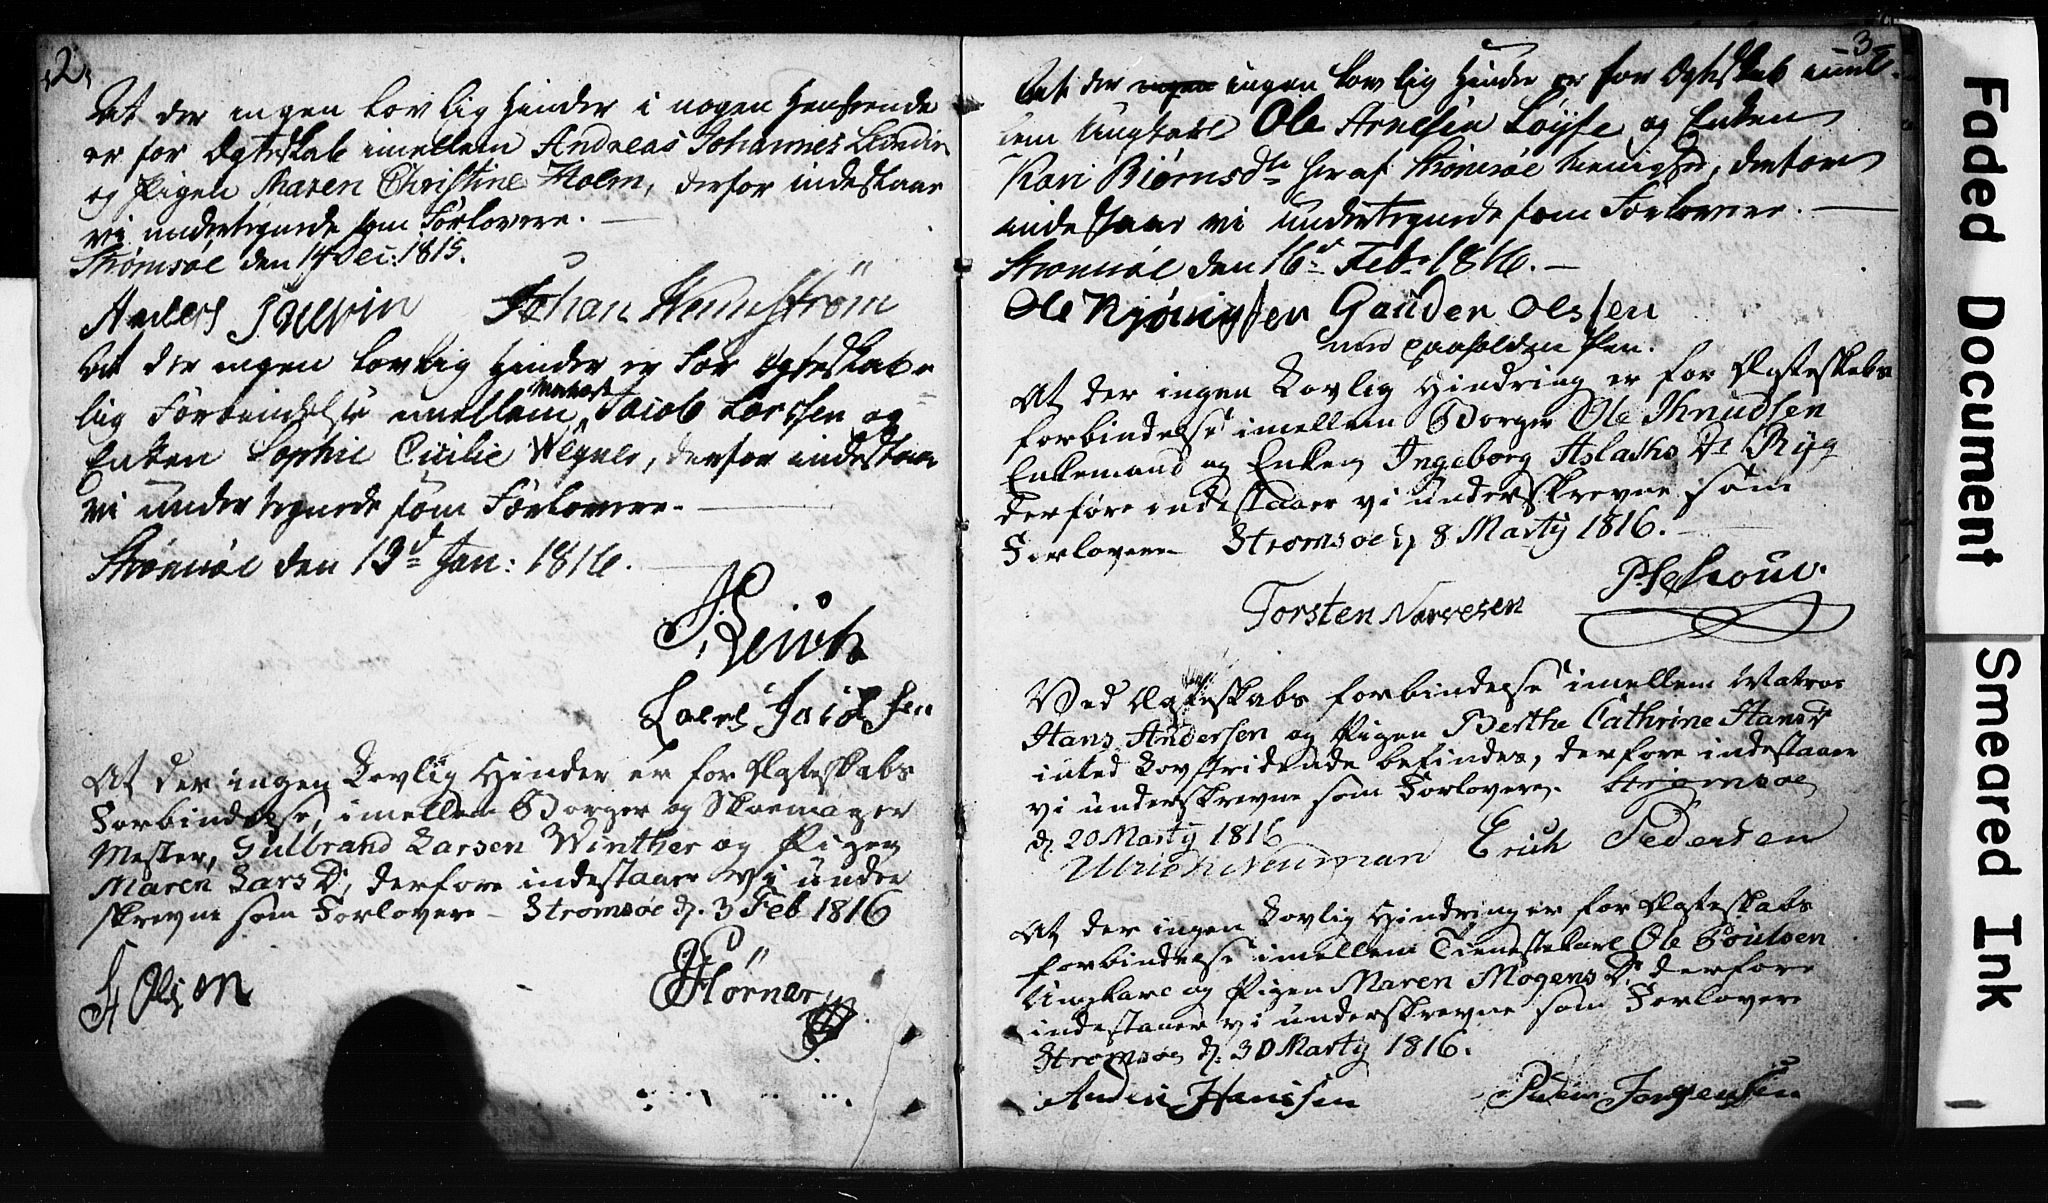 2.
At der ingen Lovlig Hinder i nogen Henseende
er for Ægteskab imellem Andreas Johannes Lundin
og Pigen Maren Christine Holm, derfor indestaar
vi undertegnede som Forlovere.
Strømsøe den 14 Dec: 1815.
Anders Johan
At der ingen Lovlig Hinder er for Ægteskabe-
lig Forbindelse imellem Jacob Larssen og
Enken Sophie Cicilie Wegner, derfor indestaar
vi undertegnede som Forlovere.
Strømsøe den 13d Jan: 1816.
Reisch
At der ingen Lovlig Hinder er for Ægteskabs
Forbindelse, imellem Borger og Skoemager
Mester, Gulbrand Larsen Winther og Pigen
Maren Lars D., derfore indestaaer vi under
skrevne som Forlovere - Strømsøe d. 3 Feb 1816
H Olsen Hörner
3
At der ingen Lovlig Hinder er for Ægteskab imel-
lem Ungkarl Ole Arnesen Løyse og Enken
Kari Biørnsdtr her af Strømsøe Menighed, derfor
indestaar vi undertegnede som Forlovere.
Strømsøe den 16d Febr 1816.
Ole Gauden Olssen
med paaholden Pen.
At der ingen Lovlig Hindring er for Ægteskabs
forbindelse imellem Borger Ole Knudsen
Enkemand og Enken Ingeborg Aslaks Dr Ryg
derføre indestaaer vi underskrevne som
Forlovere Strømsøe d. 8 Marty 1816.
Torsten Narvesen
Ved Ægteskabs forbindelse imellem Matros
Hans Andersen og Pigen Berthe Cathrine Hans D.
intet Lovstridende befindes, derfore indestaaer
vi underskrevne som Forlovere. Strømsøe
d. 20 Marty 1816
Ulrich Neuman Erich Pedersen
At der ingen Lovlig Hindring er for Ægteskabs
forbindelse imellem Tienestekarl Ole Poulsen
Ungkarl og Pigen Maren Mogens D. derfore
indestaaer vi underskrevne som Forlovere
Strømsøe d. 30 Marty 1816.
Hanssen Jørgensen
Faded Document
Smeared Ink